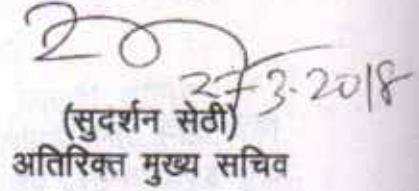 27-3-2018
(सुदर्शन सेठी)
अतिरिक्त मुख्य सचिव